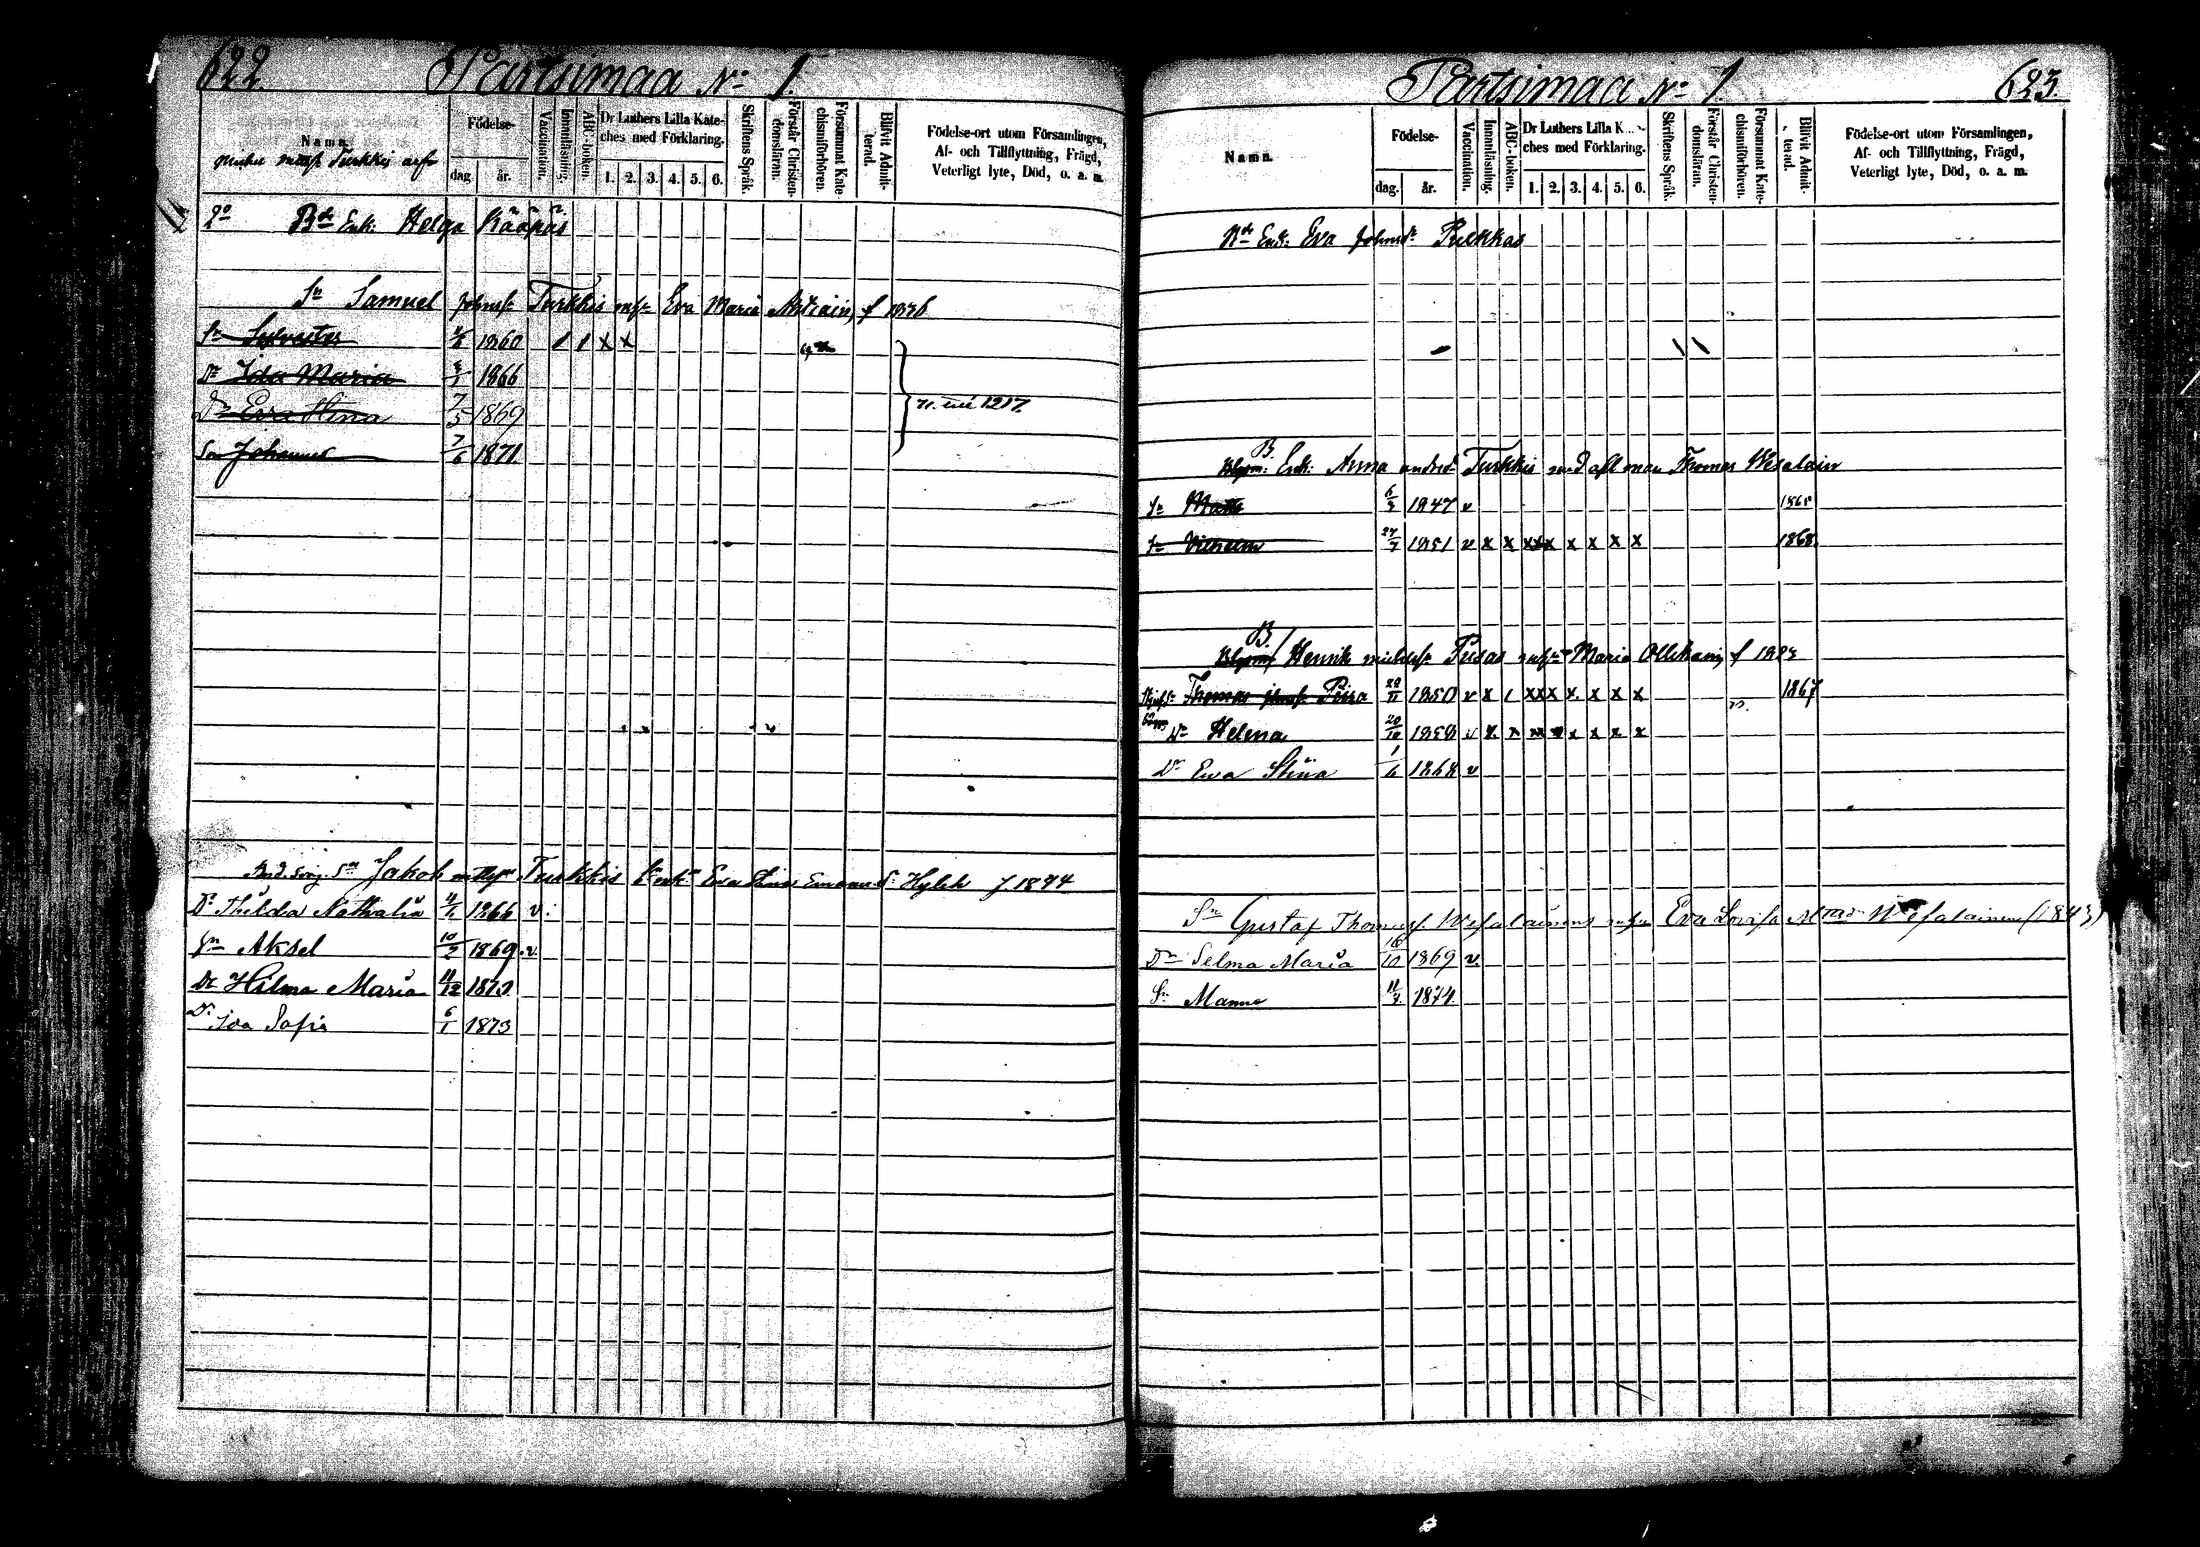 622. Partsimaa No 1.
Namn.
Födelse-
dag. år.
Vaccination.
Innanläsning.
ABC-boken.
Dr Luthers Lilla Kate-
ches med Förklaring.
1. 2. 3. 4. 5. 6.
Skriftens Språk.
Förstår Christen-
domsläran.
Försummat Kate-
chismiförhören.
Blifvit Admit-
terad.
Födelse-ort utom Församlingen,
Af- och Tillflyttning, Frägd,
Veterligt lyte, Död, o. a. m.
Turkkis
2o Bde Enk: Helga Kääpäs
Sn Samuel Johnss: Turkkis Eva Maria f 1836
Sn Sylvester 1860 1 1 x x
Dr Ida Maria 1866
Dr Eva Stina 7/5 1869
Son Johannes 7/6 1871
Sn Jakob Turkkis Eva Stina Hylch f 1844
Dr Thilda Nathalia 1866 v.
Sn Aksel 10/2 1869 v.
Dr Hilma Maria 11/12 1871
Dr Ida Sofia 6/1 1873
Partsimaa No 1. 623.
Namn.
Födelse-
dag. år.
Vaccination.
Innanläsning.
ABC-boken.
Dr Luthers Lilla K
ches med Förklaring.
1. 2. 3. 4. 5. 6.
Skriftens Språk.
Förstår Christen-
domsläran.
Försummat Kate-
chismiförhören.
Blifvit Admit-
terad.
Födelse-ort utom Församlingen,
Af- och Tillflyttning, Frägd,
Veterligt lyte, Död, o. a. m.
Enk: Eva Johnsdr Pulkkas
B.
Enk: Anna Andrsdr Turkkis med afl man Thomas Wesalain
Sn Matts 6/3 1847 v 1865
Sn Vilhelm 27/7 1851 v x x x x x x x x 1868
B.
Henrik Michelss: Pusas Maria Ollikain f 1823
Thomas 28/11 1850 v x 1 x x x x x x x 1867
Dr Helena 20/10 1858 v x x x x x x x
Dr Ewa Stina 1/6 1868 v
Sn Gustaf Thomass. Wesalainens Eva Lovisa Wesalainen (1843)
Dr Selma Maria 16/10 1869 v.
Sn Manne 1874